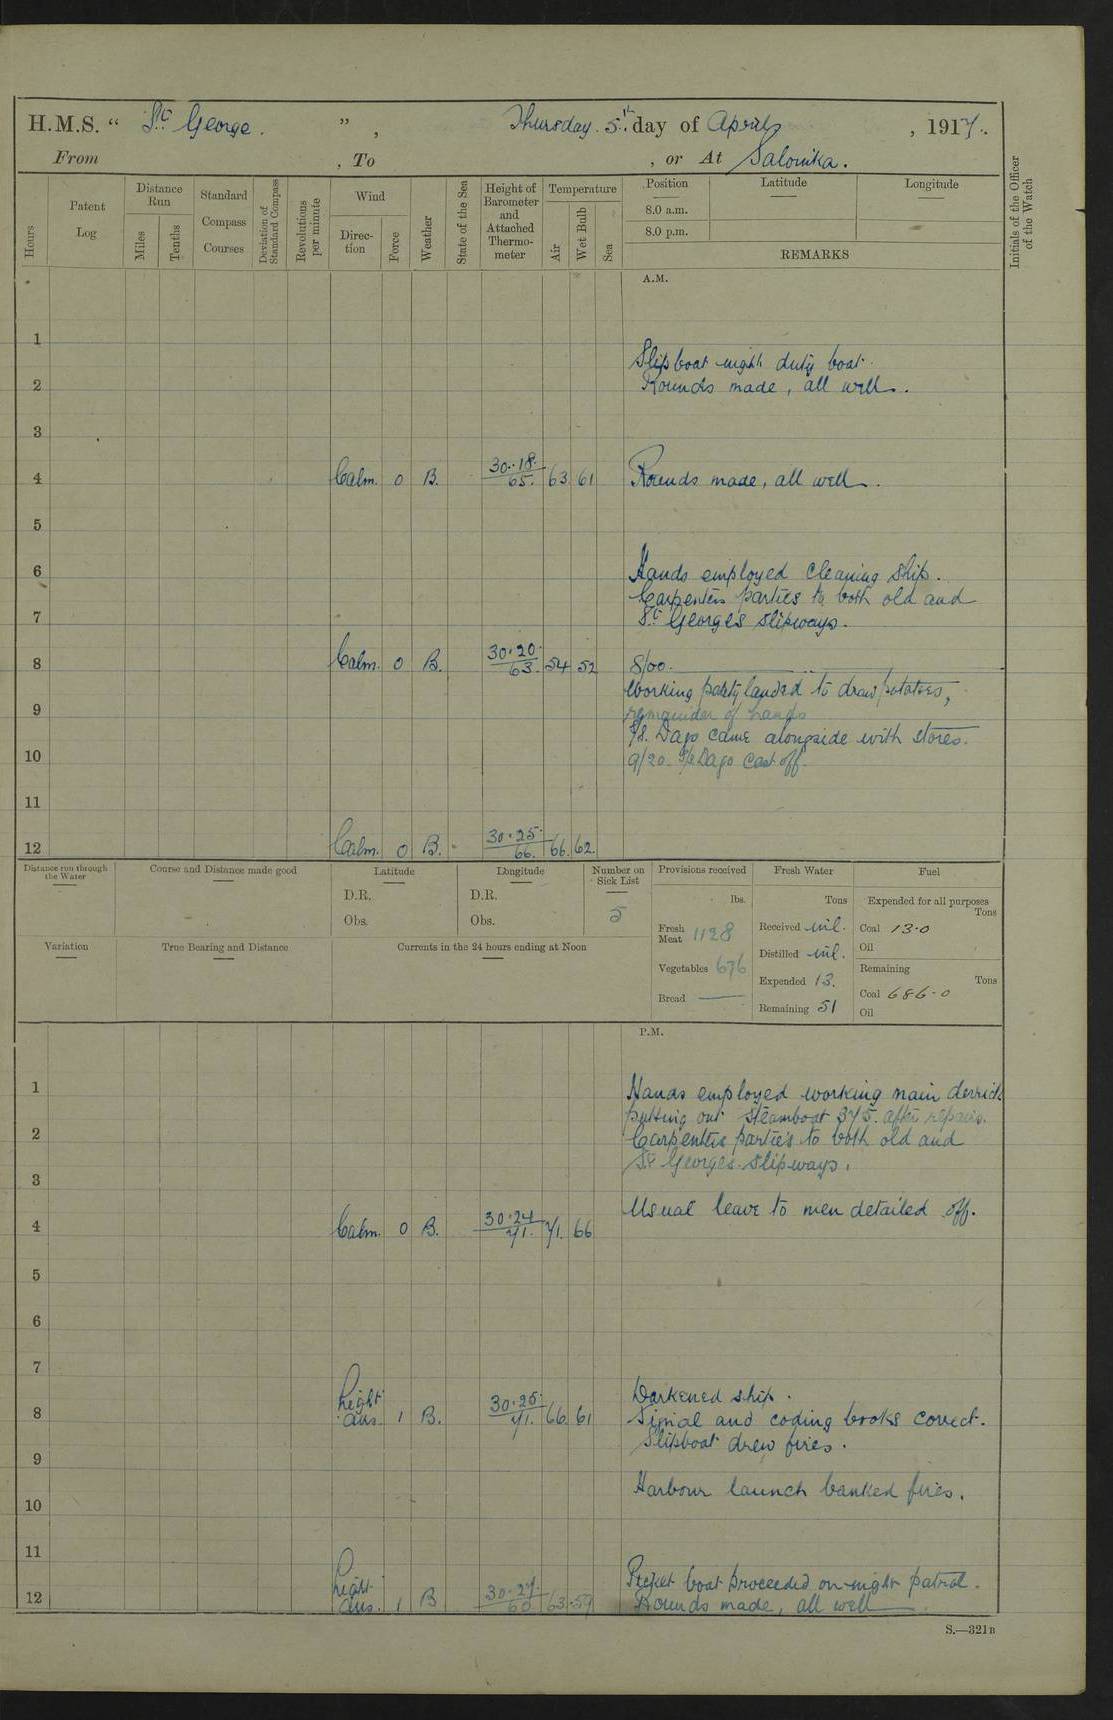 H.M.S. “ St George. ” , Thursday 5th day of April , 1917.
From , To , or At Salonika.
Hours
Patent Log
Distance Run
Miles
Tenths
Standard Compass Courses
Deviation of Standard Compass
Revolutions per minute
Wind
Direction
Force
Weather
State of the Sea
Height of Barometer and Attached Thermometer
Temperature
Air
Wet Bulb
Sea
Position
Latitude
Longitude
8.0 a.m.
8.0 p.m.
REMARKS
Initials of the Officer of the Watch
A.M.
1
Slipboat night duty boat.
2 Rounds made, all well.
3
4 Calm. 0 B. 30.18. 65. 63. 61 Rounds made, all well.
5
6 Hands employed cleaning ship.
Carpenters parties to both old and
7 St Georges slipways.
8 Calm. 0 B. 30.20. 63. 54 52 8/00.
Working party landed to draw potatoes,
9 remainder of hands
Dago came alongside with stores.
10 9/20. Dago cast off.
11
12 Calm. 0 B. 30.25. 66. 66. 62.
Distance run through the Water
Course and Distance made good
Latitude
D.R.
Obs.
Longitude
D.R.
Obs.
Number on Sick List
5
Provisions received
lbs.
Fresh Meat 1128
Vegetables 676
Bread
Fresh Water
Tons
Received nil.
Distilled nil.
Expended 13.
Remaining 51
Fuel
Expended for all purposes
Tons
Coal 13.0
Oil
Remaining
Tons
Coal 686.0
Oil
Variation
True Bearing and Distance
Currents in the 24 hours ending at Noon
P.M.
1 Hands employed working main derrick
putting out steamboat 375. after repairs.
2 Carpenters parties to both old and
3 St Georges slipways.
Usual leave to men detailed off.
4 Calm. 0 B. 30.24 71. 71. 66
5
6
7
Darkened ship.
8 Light airs. 1 B. 30.25. 71. 66. 61 Signal and coding books correct.
Slipboat drew fires.
9
Harbour launch banked fires.
10
11
Picket boat proceeded on night patrol.
12 Light airs. 1 B 30.27. 60 63. 59 Rounds made, all well
S.—321B